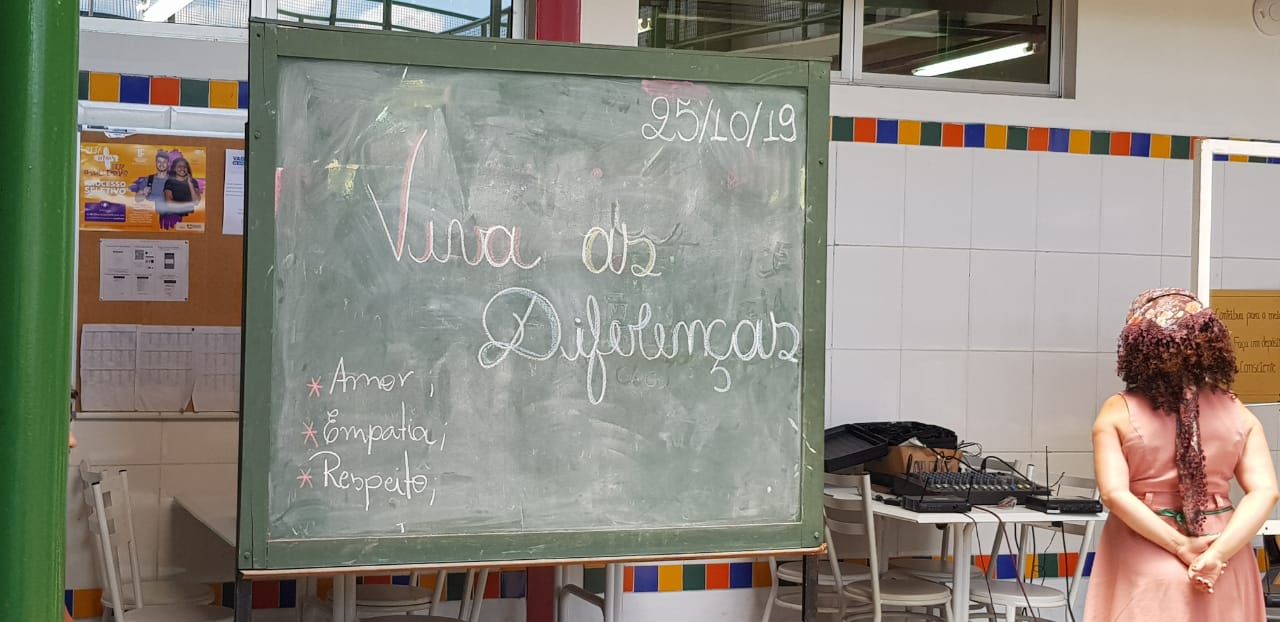 25/10/19
Viva as
Diferenças
* Amor;
* Empatia;
* Respeito;
PROCESSO
SELETIVO
Contribua para o
Faça um
Consciente